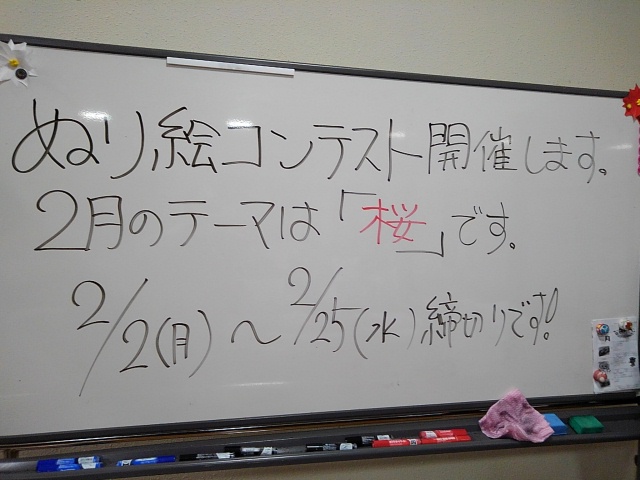 ぬり絵コンテスト開催します。
2月のテーマは「桜」です。
2/2(月)～2/25(水)締切りです!